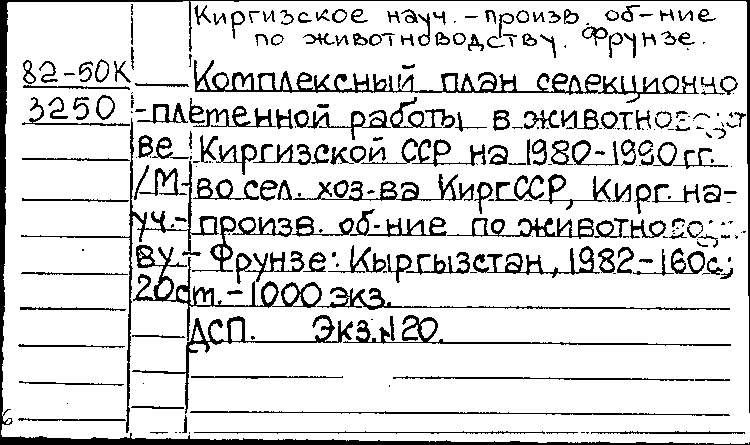 Киргизское науч.-произв. об-ние
по животноводству. Фрунзе.
82-50К Комплексный план селекционно
3250 -плетенной работы в животноводст
ве Киргизской ССР на 1980-1990 гг.
/М-во сел. хоз-ва КиргССР, Кирг. на-
уч.-произв. об-ние по животноводст-
ву.- Фрунзе: Кыргызстан, 1982.-160с.;
20см.-1000 экз.
ДСП. Экз.№20.
6